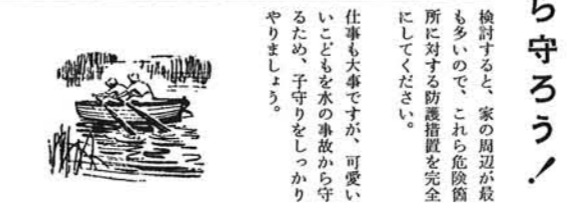 ら守ろう！
検討すると、家の周辺が最
も多いので、これら危険箇
所に対する防護措置を完全
にしてください。
仕事も大事ですが、可愛い
いこどもを水の事故から守
るため、子守りをしっかり
やりましょう。